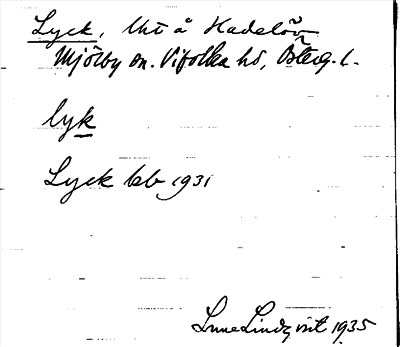 Lyck, Uht å Hadelön
Mjölby sn. Vifolka hd, Österg. l.
lyk
Lyck bb 1931
Sune Lindqvist 1935